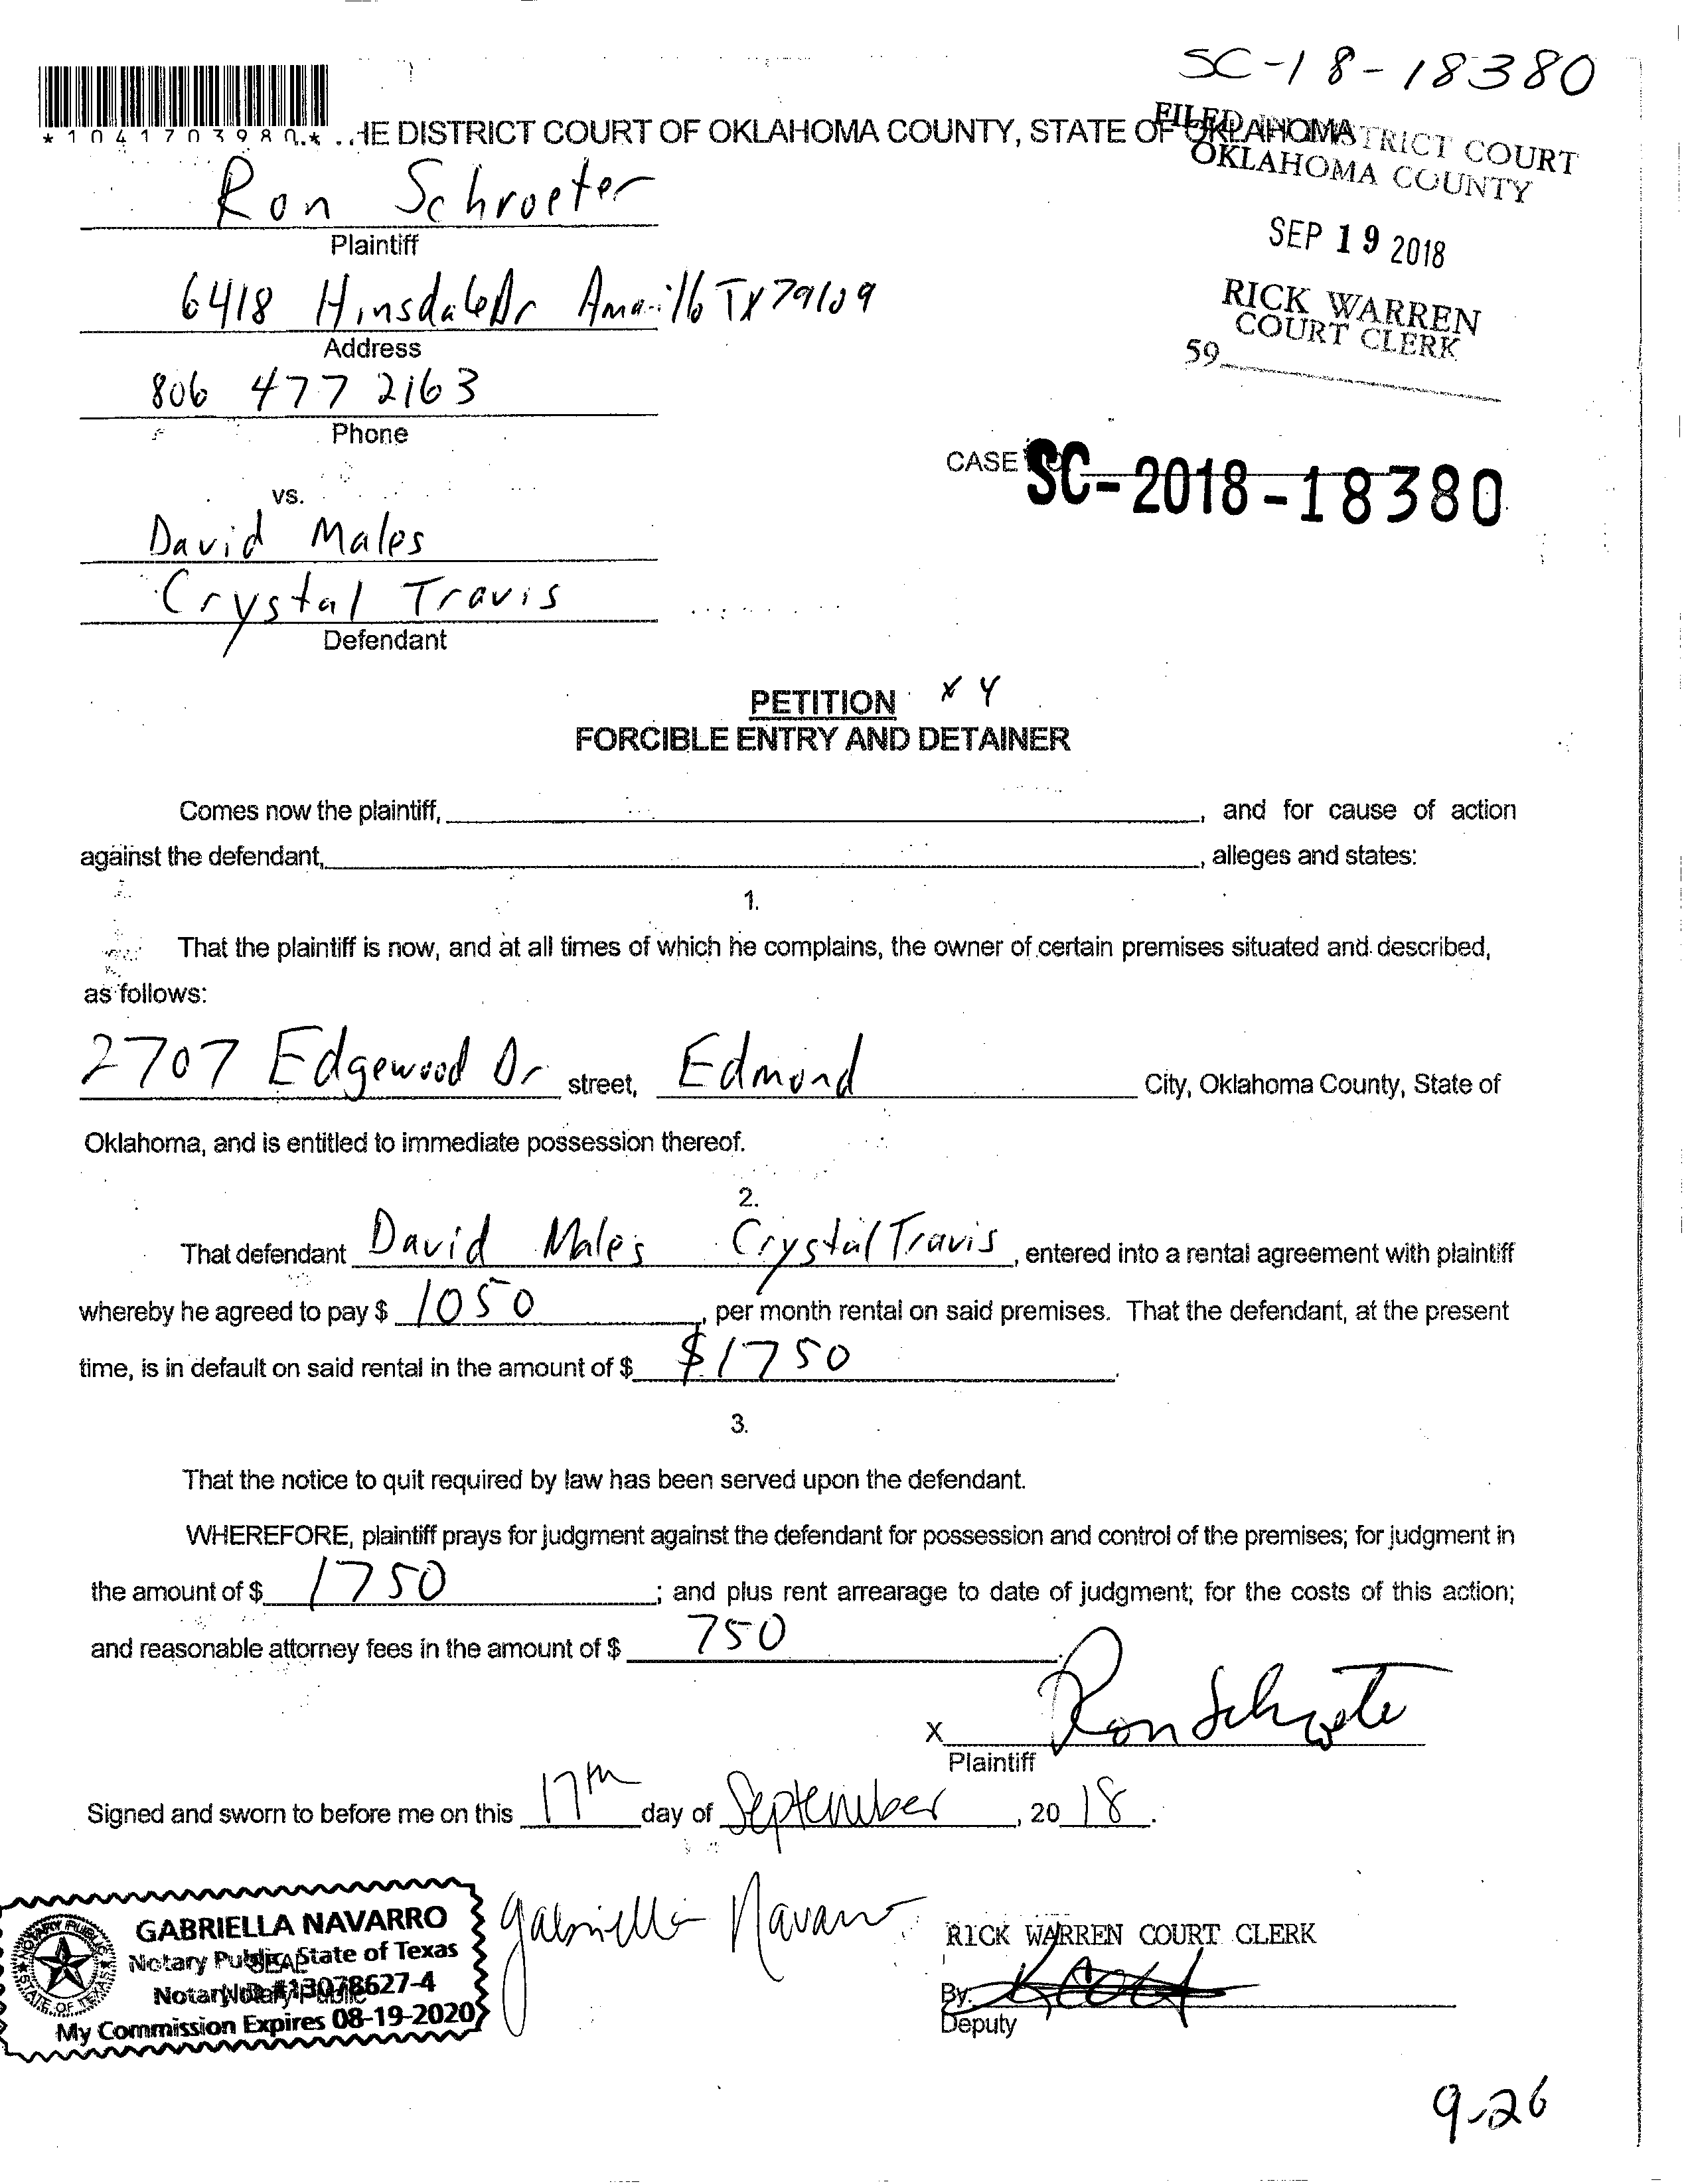 SC-18-18380
*1041703980*
HE DISTRICT COURT OF OKLAHOMA COUNTY, STATE OF OKLAHOMA
FILED IN DISTRICT COURT
OKLAHOMA COUNTY
Ron Schroeter
Plaintiff
SEP 19 2018
6418 Hinsdale Dr Amarillo TX 79109
Address
RICK WARREN
COURT CLERK
59
806 477 2163
Phone
CASE
SC-2018-18380
vs.
David Males
Crystal Travis
Defendant
PETITION x 4
FORCIBLE ENTRY AND DETAINER
Comes now the plaintiff, , and for cause of action
against the defendant, , alleges and states:
1.
That the plaintiff is now, and at all times of which he complains, the owner of certain premises situated and described,
as follows:
2707 Edgewood Dr street, Edmond City, Oklahoma County, State of
Oklahoma, and is entitled to immediate possession thereof.
2.
That defendant David Males Crystal Travis, entered into a rental agreement with plaintiff
whereby he agreed to pay $ 1050, per month rental on said premises. That the defendant, at the present
time, is in default on said rental in the amount of $ $1750.
3.
That the notice to quit required by law has been served upon the defendant.
WHEREFORE, plaintiff prays for judgment against the defendant for possession and control of the premises; for judgment in
the amount of $ 1750; and plus rent arrearage to date of judgment; for the costs of this action;
and reasonable attorney fees in the amount of $ 750.
X Ron Schroeter
Plaintiff
Signed and sworn to before me on this 17th day of September, 2018.
GABRIELLA NAVARRO
Notary Public, State of Texas
Notary ID #13078627-4
My Commission Expires 08-19-2020
Gabriella Navarro
RICK WARREN COURT CLERK
By:
Deputy
9-26